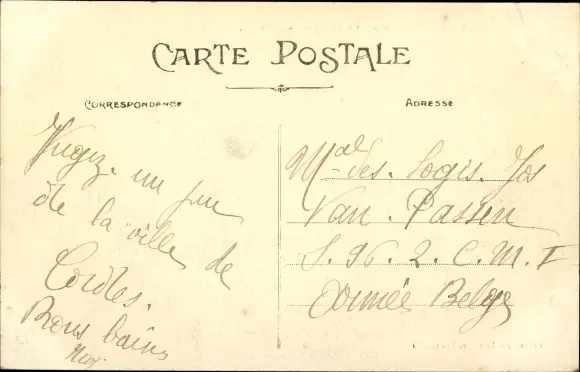 CARTE POSTALE
CORRESPONDANCE
un peu
de la ville de
Cordes.
Bons
ADRESSE
Mal des Logis Jos
Van Passen
S. 96. 2. C. M. I
Armée Belge